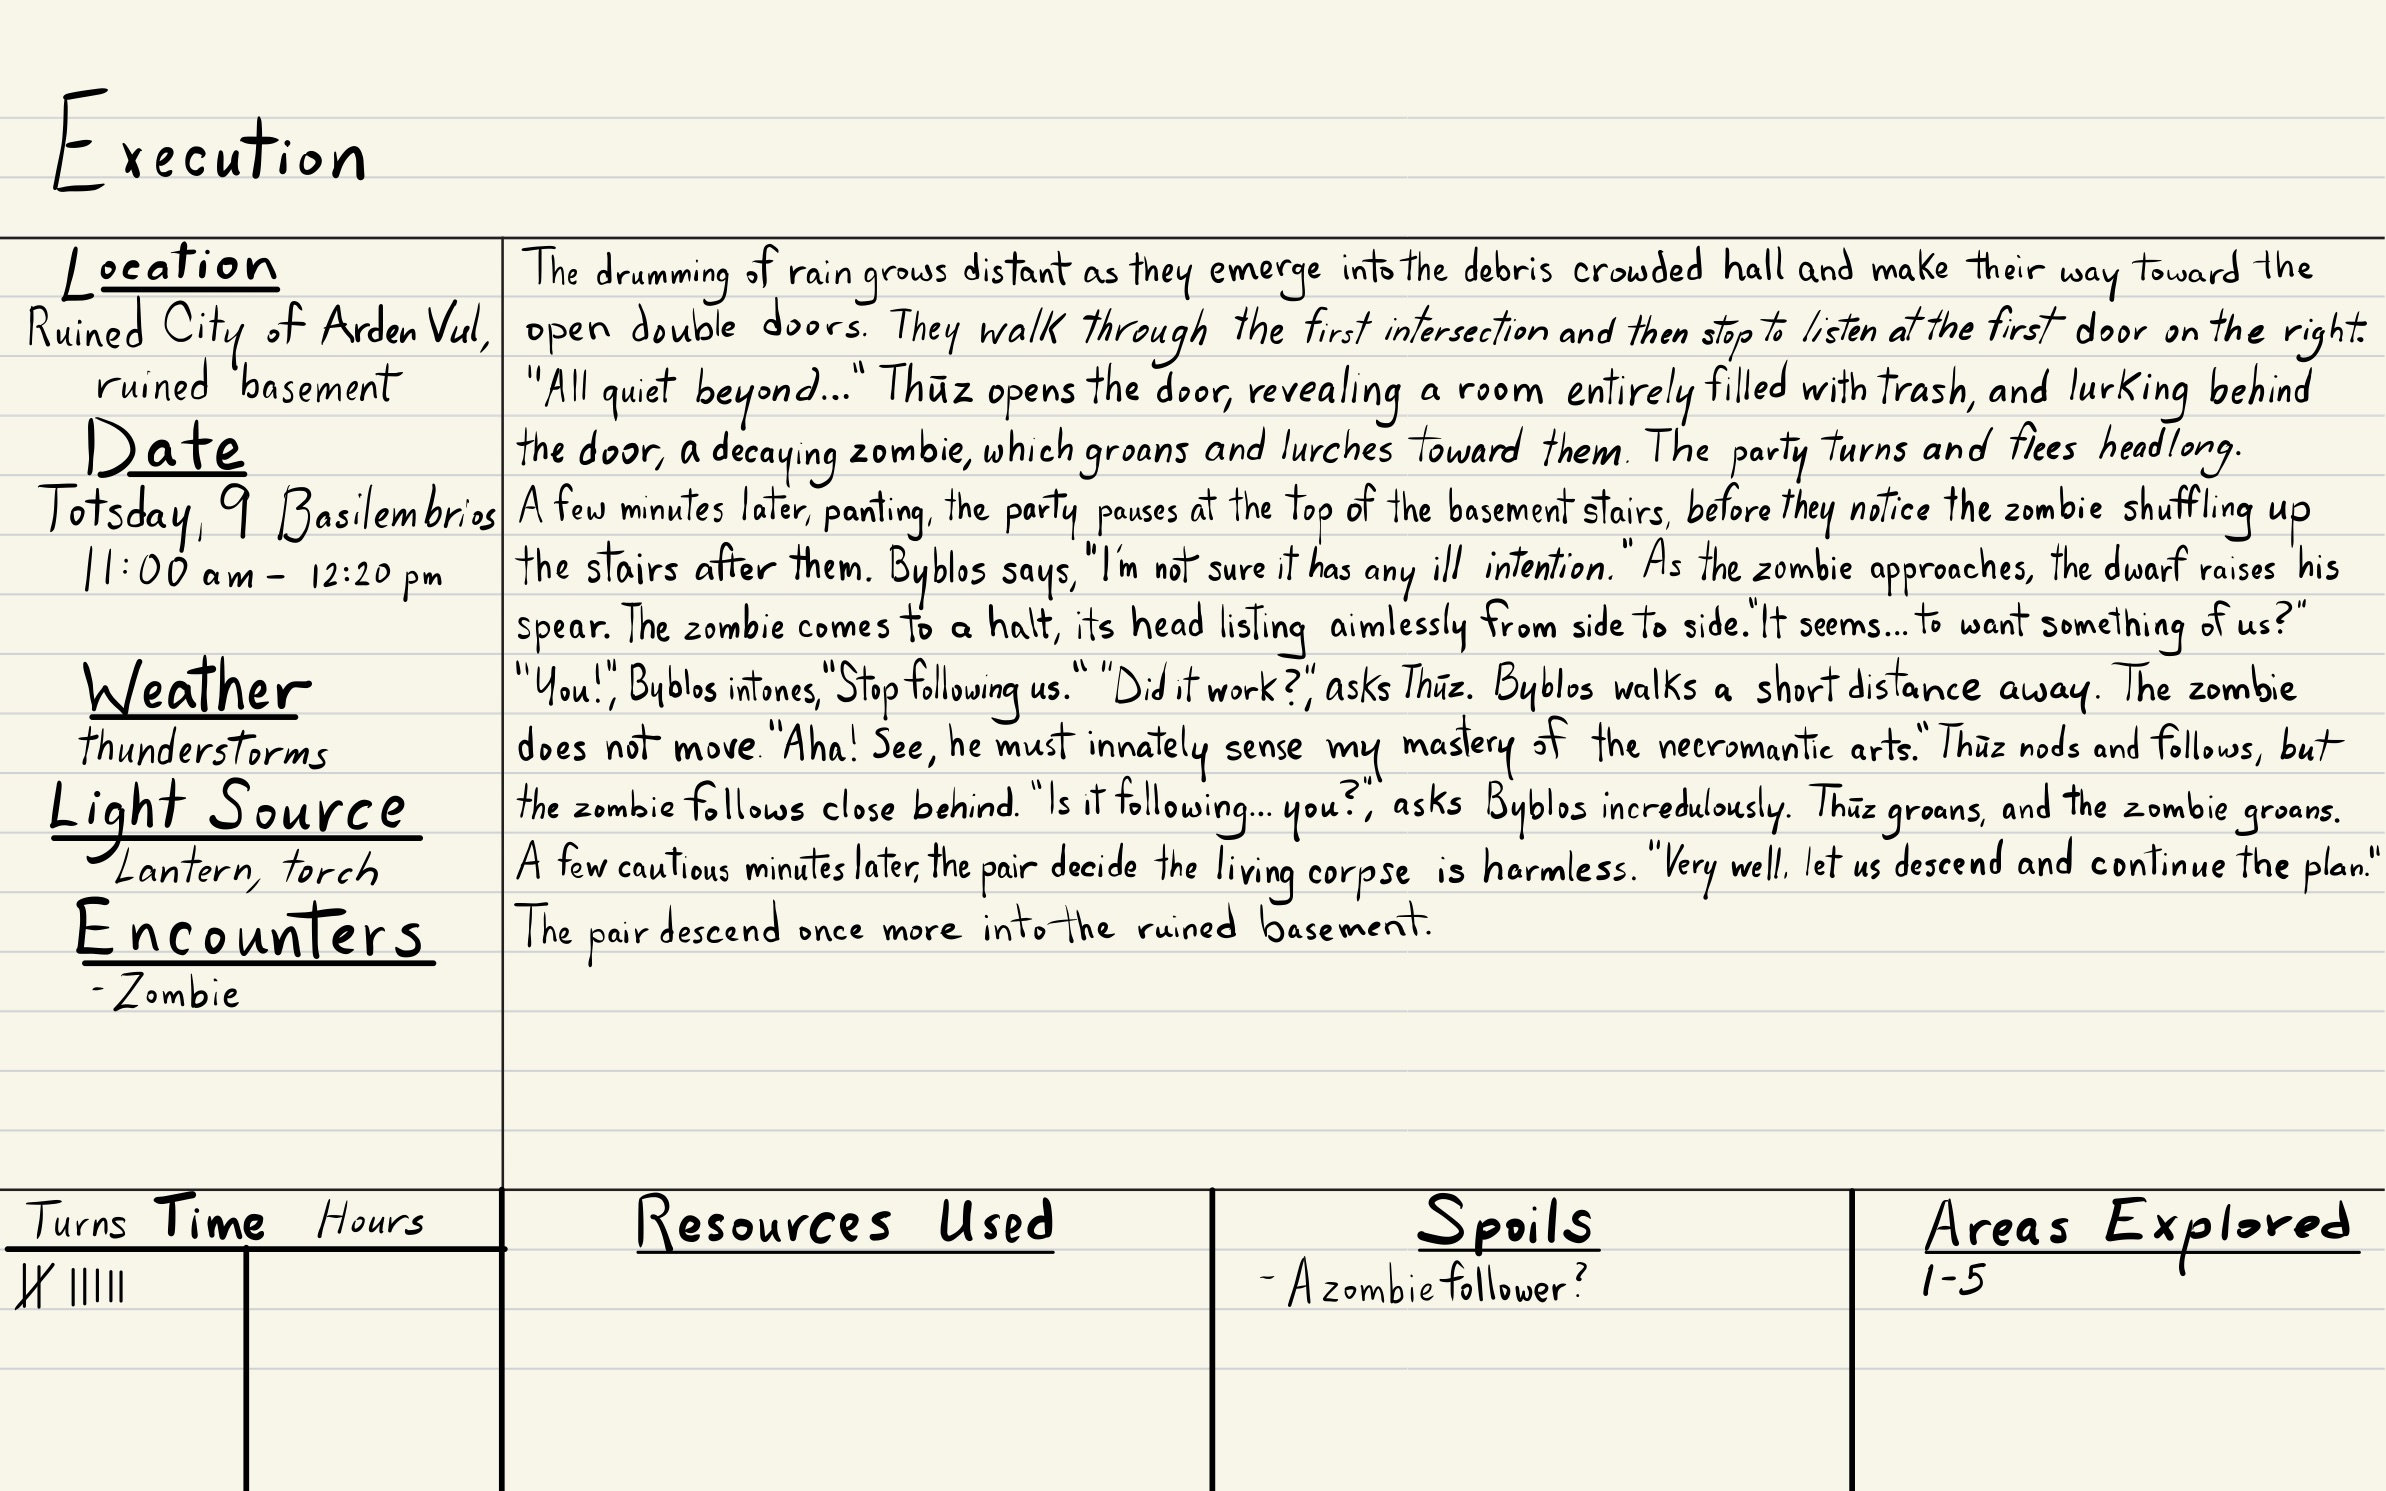 Execution
Location
Ruined City of Arden Vul,
ruined basement
Date
Totsday, 9 Basilembrios
11:00 am - 12:20 pm
Weather
thunderstorms
Light Source
Lantern, torch
Encounters
- Zombie
The drumming of rain grows distant as they emerge into the debris crowded hall and make their way toward the
open double doors. They walk through the first intersection and then stop to listen at the first door on the right.
"All quiet beyond..." Thūz opens the door, revealing a room entirely filled with trash, and lurking behind
the door, a decaying zombie, which groans and lurches toward them. The party turns and flees headlong.
A few minutes later, panting, the party pauses at the top of the basement stairs, before they notice the zombie shuffling up
the stairs after them. Byblos says, "I'm not sure it has any ill intention." As the zombie approaches, the dwarf raises his
spear. The zombie comes to a halt, its head listing aimlessly from side to side. "It seems... to want something of us?"
"You!", Byblos intones, "Stop following us." "Did it work?", asks Thūz. Byblos walks a short distance away. The zombie
does not move. "Aha! See, he must innately sense my mastery of the necromantic arts." Thūz nods and follows, but
the zombie follows close behind. "Is it following... you?", asks Byblos incredulously. Thūz groans, and the zombie groans.
A few cautious minutes later, the pair decide the living corpse is harmless. "Very well, let us descend and continue the plan."
The pair descend once more into the ruined basement.
Turns Time Hours
Resources Used
Spoils
- A zombie follower?
Areas Explored
1-5